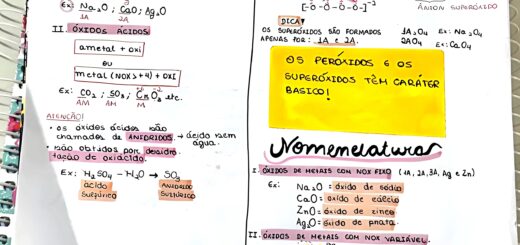 Ex: Na₂O ; CaO ; Ag₂O
1A 2A
II. ÓXIDOS ÁCIDOS
ametal + oxi
ou
metal (NOX > +4) + OXI
Ex: CO₂ ; SO₃ ; CrO₃ etc.
AM AM M
ATENÇÃO!
• os óxidos ácidos são
chamados de ANIDRIDOS. → ácido sem
água.
• são obtidos por desidra
tação de oxiácido.
Ex: H₂SO₄ - H₂O → SO₃
ácido ANIDRIDO
sulfúrico SULFÚRICO
[-O-O-O-O-]⁻²
ÂNION SUPERÓXIDO
DICA
OS SUPERÓXIDOS SÃO FORMADOS 1A₂O₄ Ex: Na₂O₄
APENAS POR: 1A e 2A. 2AO₄ Ex: CaO₄
OS PERÓXIDOS E OS
SUPERÓXIDOS TÊM CARÁTER
BASICO!
Nomenclaturas
I. ÓXIDOS DE METAIS COM NOX FIXO (1A, 2A, 3A, Ag e Zn)
Ex: Na₂O = óxido de sódio
CaO = óxido de cálcio
ZnO = óxido de zinco
Ag₂O = óxido de prata.
II. ÓXIDOS DE METAIS COM NOX VARIÁVEL.